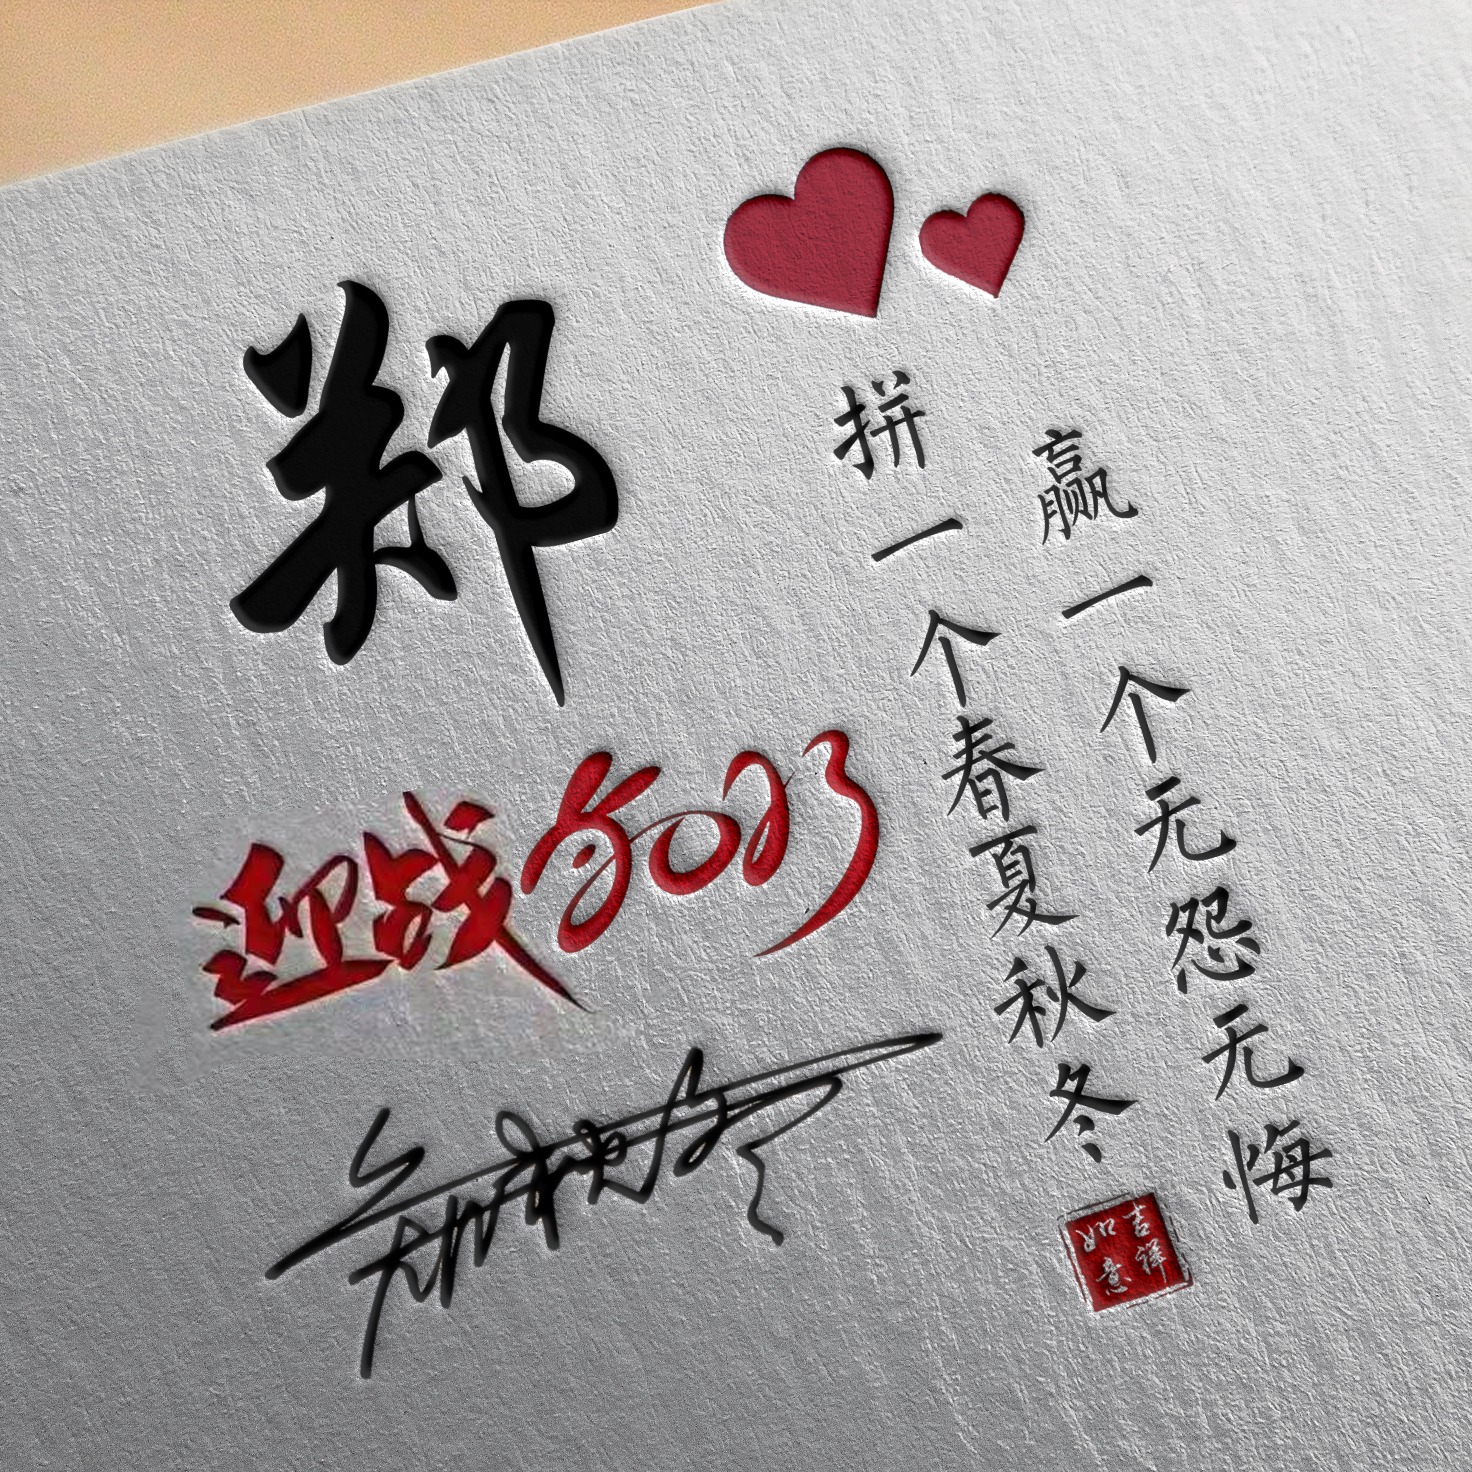 郑
迎战2023
拼一个春夏秋冬
赢一个无怨无悔
吉祥
如意